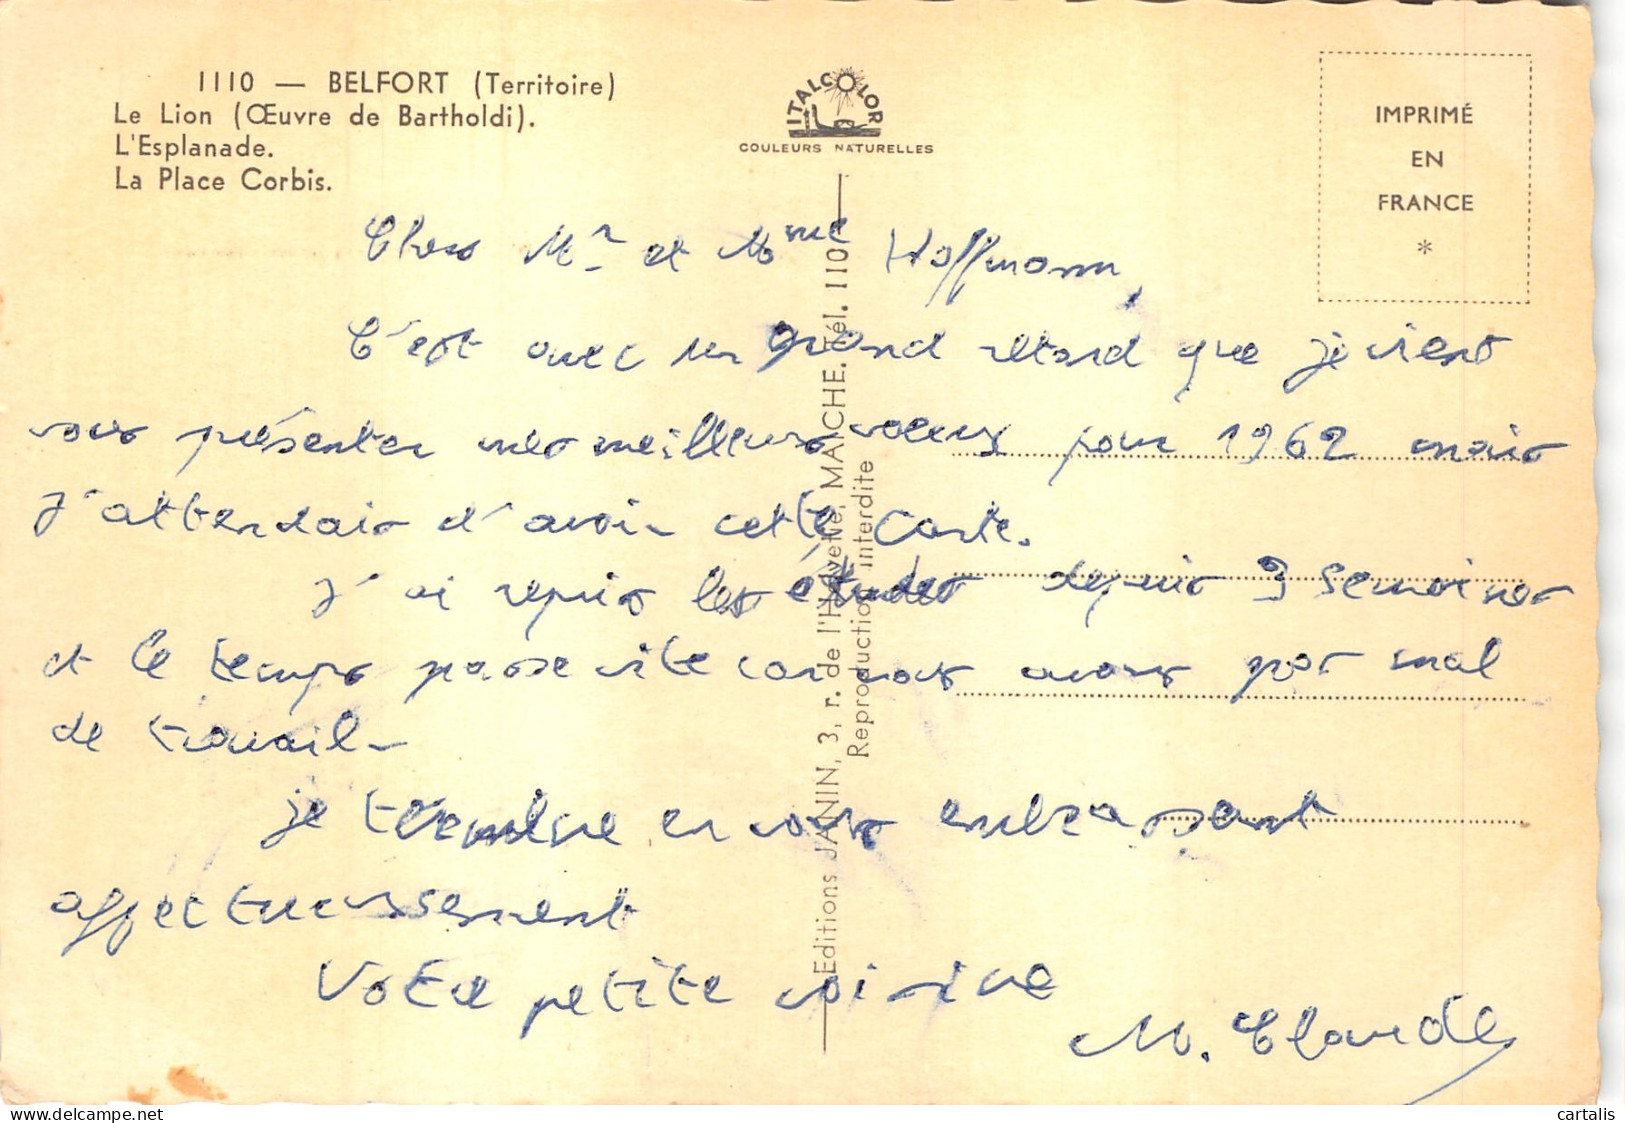 1110 — BELFORT (Territoire)
Le Lion (Œuvre de Bartholdi).
L'Esplanade.
La Place Corbis.
ITALCOLOR
COULEURS NATURELLES
IMPRIMÉ
EN
FRANCE
*
Chers Mr et Mme Hoffmann,
C'est avec un grand retard que je viens
vous présenter mes meilleurs voeux pour 1962 mais
j'attendais d'avoir cette carte.
J'ai repris les études depuis 3 semaines
et le temps passe vite car nous avons pas mal
de travail.
je termine en vous embrassant
affectueusement
Votre petite voisine
M. Claude
Editions JANIN, 3, r. de l'Helvétie, MAICHE. Tél. 110
Reproduction interdite
cartalis